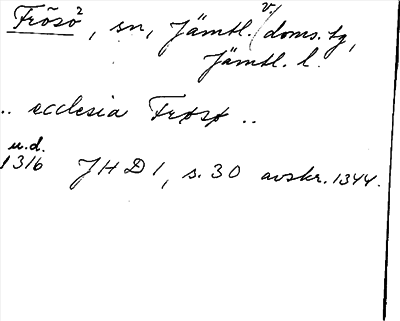 Frösö², sn, Jämtl. v./doms. tg,
Jämtl. l.
.. ecclesia Frøsø ..
u.d.
1316 JHD 1, s. 30 avskr. 1344.